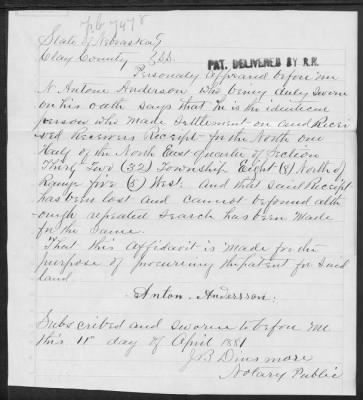 State of Nebraska }
Clay County } SS.
PAT. DELIVERED BY R.R.
Personaly Appeared before me
N Antone Anderson who being duly sworn
on his oath says that he is the identicle
person who made Settlement on and Recei
ved Receivers Receipt for the North one
Half of the North East quarter of Section
Thirty Two (32) Township Eight (8) North of
Range five (5) West. And that said Receipt
has been lost and cannot be found alth-
ough repeated search has been made
for the Same.
That this Affidavit is made for the
purpose of procuring the patent for Said
land
Anton Andersson.
Subscribed and sworn to before me
this 11" day of April 1881
J B Dinsmore
Notary Public